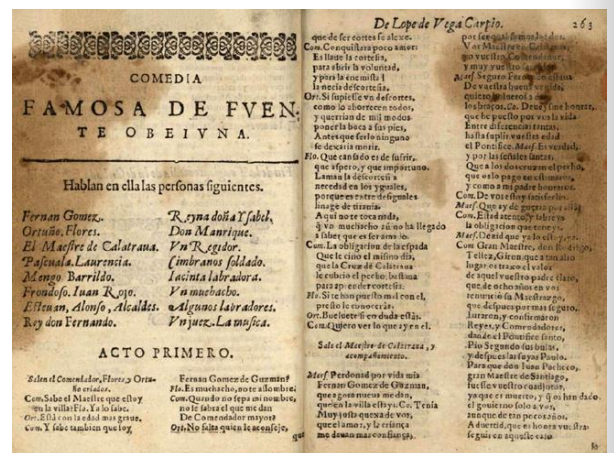 COMEDIA
FAMOSA DE FVEN-
TE OBEIVNA.
Hablan en ella las personas siguientes.
Fernan Gomez.
Ortuño, Flores.
El Maestre de Calatraua.
Pascuala. Laurencia.
Mengo Barrildo.
Frondoso. Iuan Rojo.
Esteuan, Alonso, Alcaldes.
Rey don Fernando.
Reyna doña Ysabel,
Don Manrique.
Vn Regidor.
Cimbranos soldado.
Iacinta labradora.
Vn muchacho.
Algunos labradores.
Vn juez. La musica.
ACTO PRIMERO.
Salen el Comendador, Flores, y Ortu-
ño criados.
Com. Sabe el Maestre que estoy
en la villa? Flo. Ya lo sabe.
Ort. Està con la edad mas graue.
Com. Y sabe tambien que soy
Fernan Gomez de Guzman?
Flo. Es muchacho, no te assombre.
Com. Quando no sepa mi nombre,
no le sobra el que me dan
De Comendador mayor?
Ort. No falta quien le aconseje,
que
De Lope de Vega Carpio. 263
que de ser cortes se alexe.
Com. Conquistara poco amor:
Es llaue la cortesia,
para abrir la voluntad,
y para la enemistad
la necia descortesia.
Ort. Si supiesse vn descortes,
como lo aborrecen todos,
y querrian de mil modos
poner la boca a sus pies,
Antes que serlo ninguno
se dexaria morir.
Flo. Que cansado es de sufrir,
que aspero, y que importuno.
Llaman la descortesia
necedad en los yguales,
porque es entre desiguales
linage de tirania.
Aqui no te toca nada,
q̃ vn muchacho aũ no ha llegado
a saber que es ser amado.
Com. La obligacion de la espada
Que se ciño el mismo dia,
que la Cruz de Calatraua
le cubriò el pecho, bastaua
para aprender cortesia.
Flo. Si te han puesto mal con el,
presto le conoceràs.
Ort. Bueluete si en duda estàs.
Com. Quiero ver lo que ay en el.
Sale el Maestre de Calatraua, y
acompañamiento.
Maes. Perdonad por vida mia
Fernan Gomez de Guzman,
que agora nueua me dan,
que en la villa estays. Co. Tenia
Muy justa quexa de vos,
que el amor, y la criança
me dauan mas confiança,
Vos Maestre en Calatraua,
yo vuestro Comendador,
y muy vuestro seruidor.
Maes. Seguro Fernando estaua
De vuestra buena venida,
quiero bolueros a dar
los braços. Co. Deueysme honrar,
que he puesto por vos la vida
Entre diferencias tantas,
hasta suplir vuestra edad
el Pontifice. Maes. Es verdad,
y por las señales santas,
Que a los dos cruzan el pecho,
que os lo pago en estimaros,
y como a mi padre honraros.
Com. De vos estoy satisfecho.
Maes. Que ay de guerra por allà?
Com. Estad atento, y sabreys
la obligacion que teneys.
Maes. Dezid que ya lo estoy, ya.
Com. Gran Maestre, don Rodrigo,
Tellez, Giron, que a tan alto
lugar os traxo el valor
de aquel vuestro padre claro,
que de ocho años en vos
renunciò su Maestrazgo,
que despues por mas seguro,
juraron, y confirmaron
Reyes, y Comendadores,
dando el Pontifice santo,
Pio Segundo sus bulas,
y despues las suyas Paulo.
Para que don Iuan Pacheco,
gran Maestre de Santiago,
fuesse vuestro coadjutor,
ya que es muerto, y q̃ os han dado
el gouierno solo a vos,
aunque de tan pocos años,
Aduertid, que es honra vuestra
seguir en aqueste caso